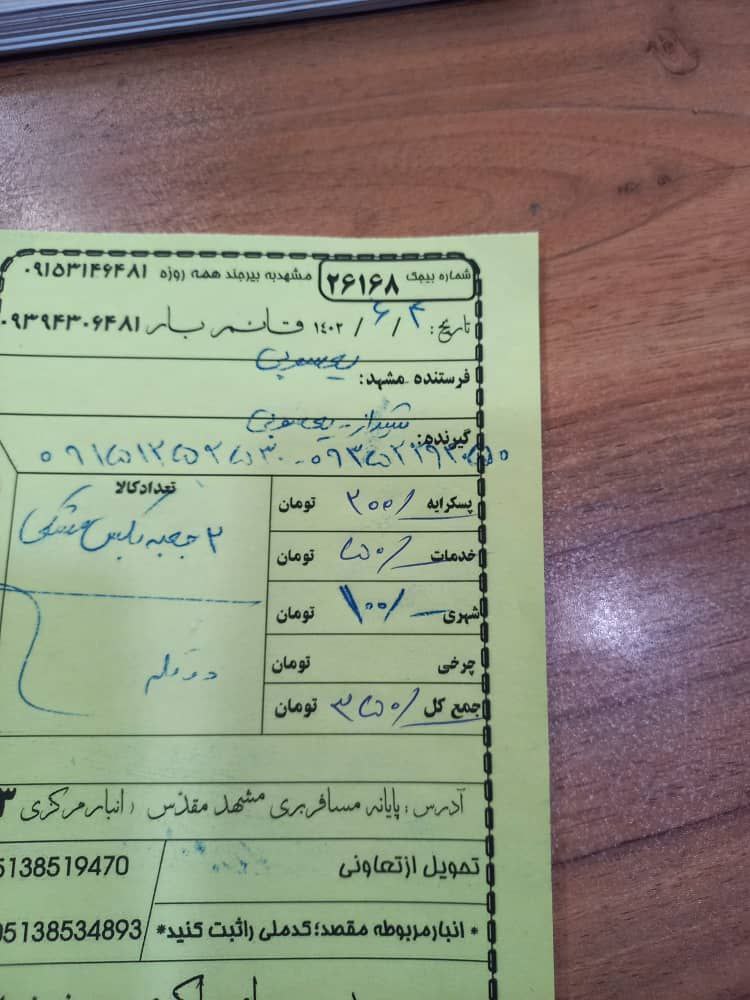 شماره بیجک ۲۶۱۶۸ مشهد به بیرجند همه روزه ۰۹۱۵۳۱۴۶۴۸۱
تاریخ: ۴ / ۶ / ۱۴۰۲ قائم بار ۰۹۳۹۴۳۰۶۴۸۱
فرستنده مشهد: یعسوبی
گیرنده: شیراز - یعسوبی
۰۹۱۵۱۲۵۲۵۳۰ - ۰۹۳۵۲۲۹۲۰۵۵۰
تعدادکالا
۲ جعبه مشکی
دو قلم
پسکرایه ۲۰۰/ تومان
خدمات ۵۰/ تومان
شهری ۱۰۰/ تومان
چرخی تومان
جمع کل ۳۵۰/ تومان
آدرس: پایانه مسافربری مشهد مقدس، انبار مرکزی ۳
تحویل ازتعاونی 5138519470
* انبارمربوطه مقصد؛کدملی راثبت کنید* 05138534893